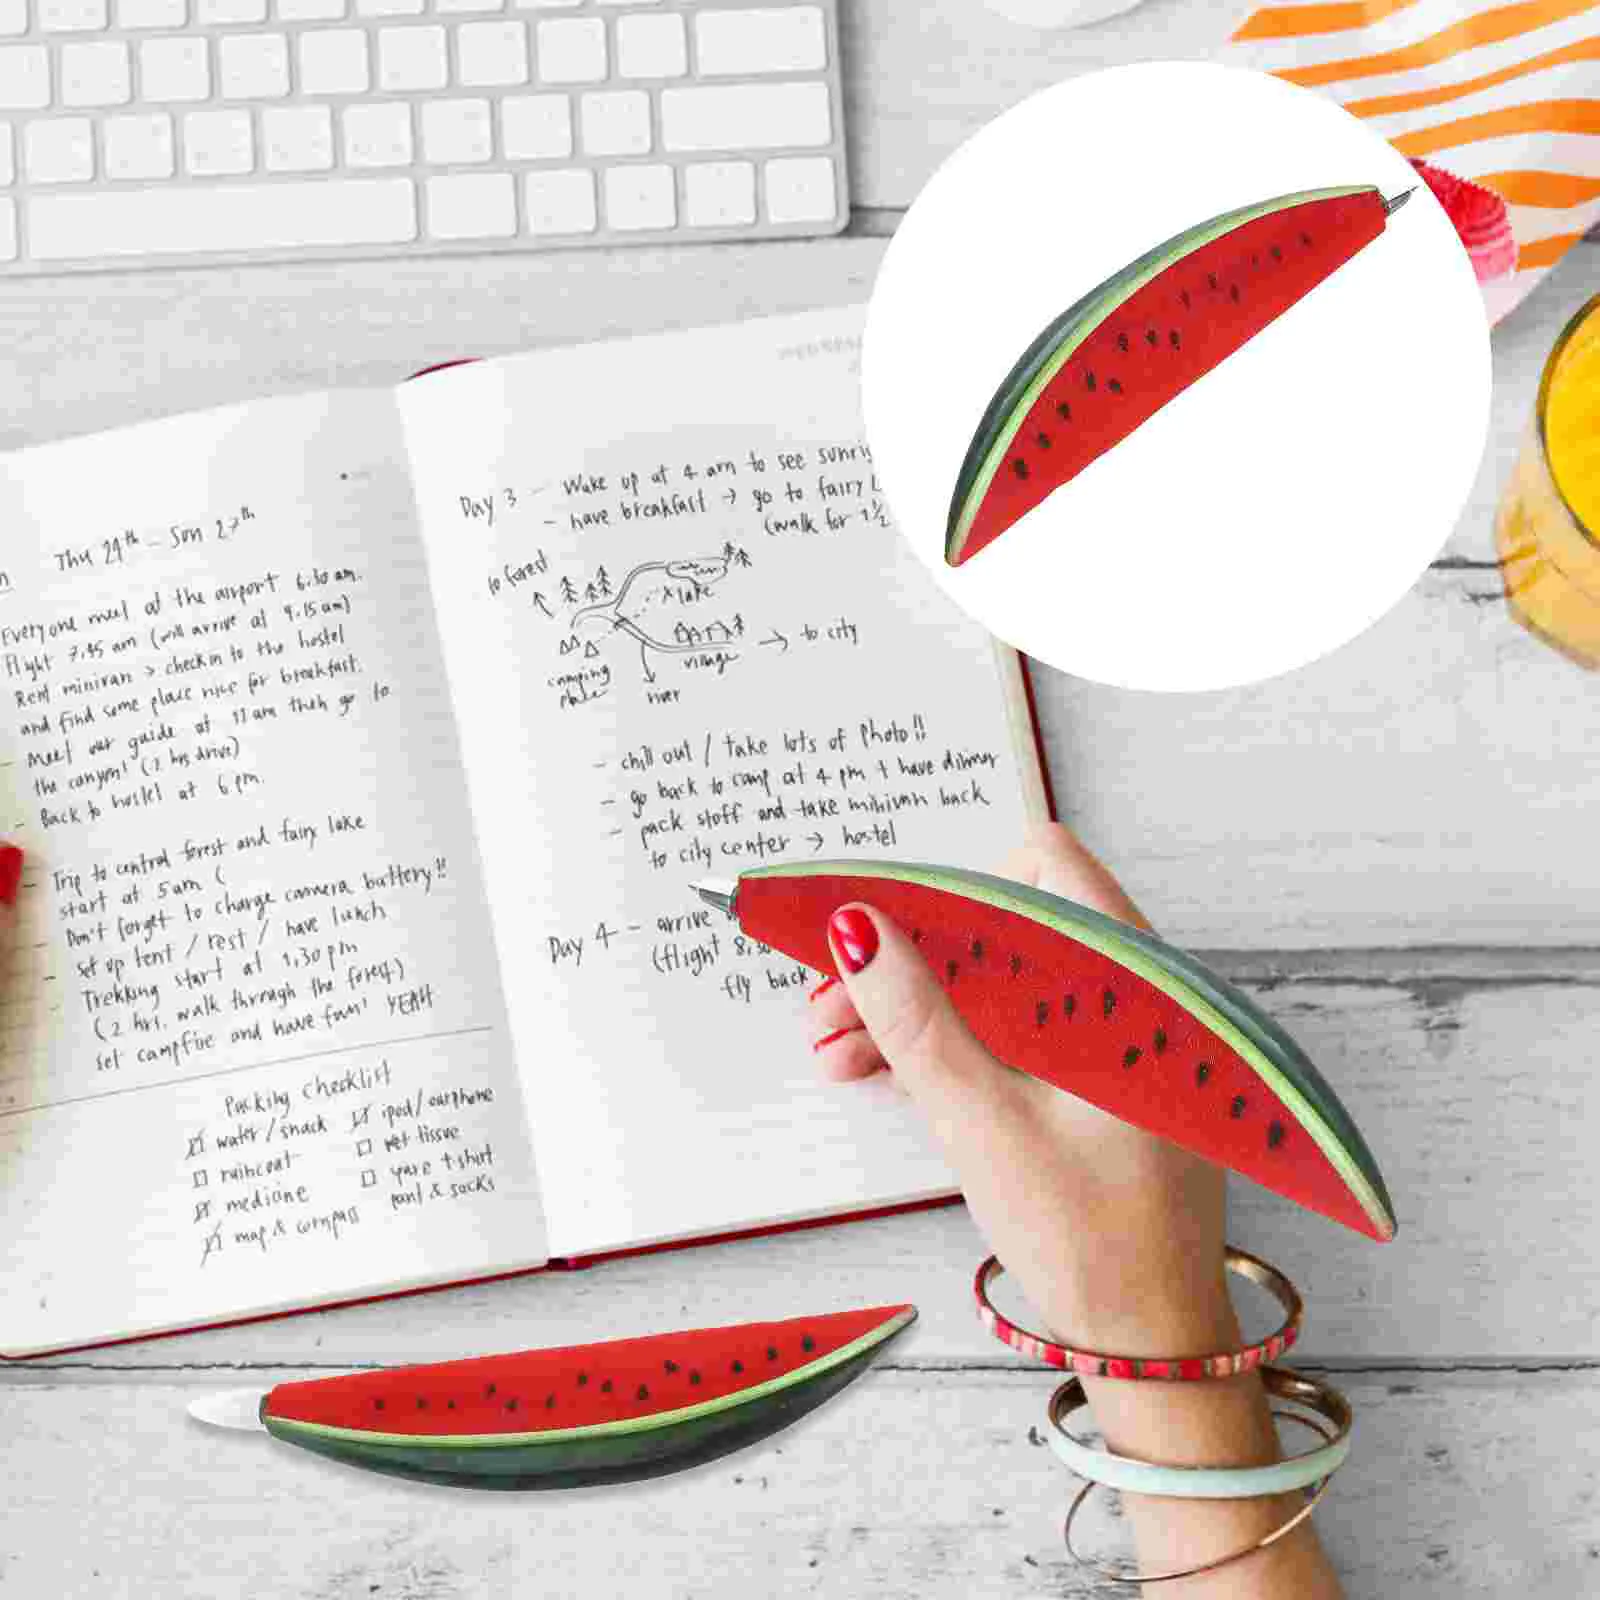 Thu 24th - Sun 27th
Everyone meet at the airport 6.30 am.
flight 7.45 am (will arrive at 9.15 am)
Rent minivan > check in to the hostel
and find some place nice for breakfast.
- meet our guide at 11 am then go to
the canyon! (2 hrs drive)
- Back to hostel at 6 pm.
- Trip to central forest and fairy lake
start at 5 am (
Don't forget to charge camera battery!!
- set up tent / rest / have lunch
- Trekking start at 1.30 pm
(2 hrs. walk through the forest)
set campfire and have fun! YEAH
Packing checklist
water / snack
raincoat
medicine
map & compass
ipod / earphone
wet tissue
spare t-shirt
pant & socks
Day 3 - Wake up at 4 am to see sunris
- have breakfast → go to fairy L
(walk for 1 1/2
to forest
lake
camping
place
river
village
→ to city
- chill out / take lots of photo!!
- go back to camp at 4 pm + have dinner
- pack stuff and take minivan back
to city center → hostel
Day 4 - arrive
(flight 8.30
fly back